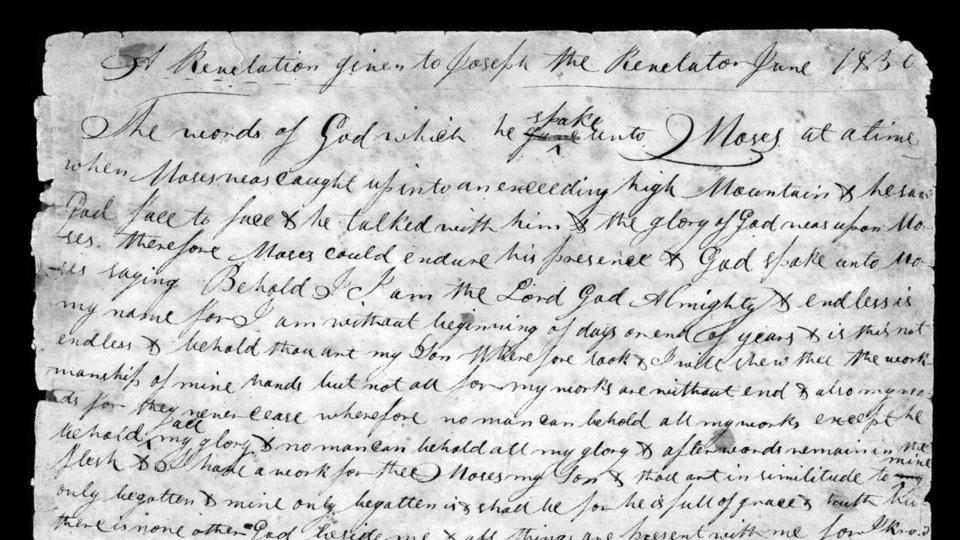 A Revelation given to Joseph the Revelator June 1830
The words of God which he gave spake unto Moses at a time
when Moses was caught up into an exceeding high Mountain & he saw
God face to face & he talked with him & the glory of God was upon Mo-
ses therefore Moses could endure his presence & God spake unto Mo-
ses saying Behold I I am the Lord God Almighty & endless is
my name for I am without beginning of days or end of years & is this not
endless & behold thou art my Son Wherefore look & I will shew thee the work-
manship of mine hands but not all for my works are without end & also my wo-
ds for they never cease wherefore no man can behold all my works except he
behold all my glory & no man can behold all my glory & after words remain in the
flesh & I have a work for thee Moses my Son & thou art in similitude to my mine
only begotten & mine only begotten is & shall be for he is full of grace & truth
there is none other God beside me & all things are present with me for I know